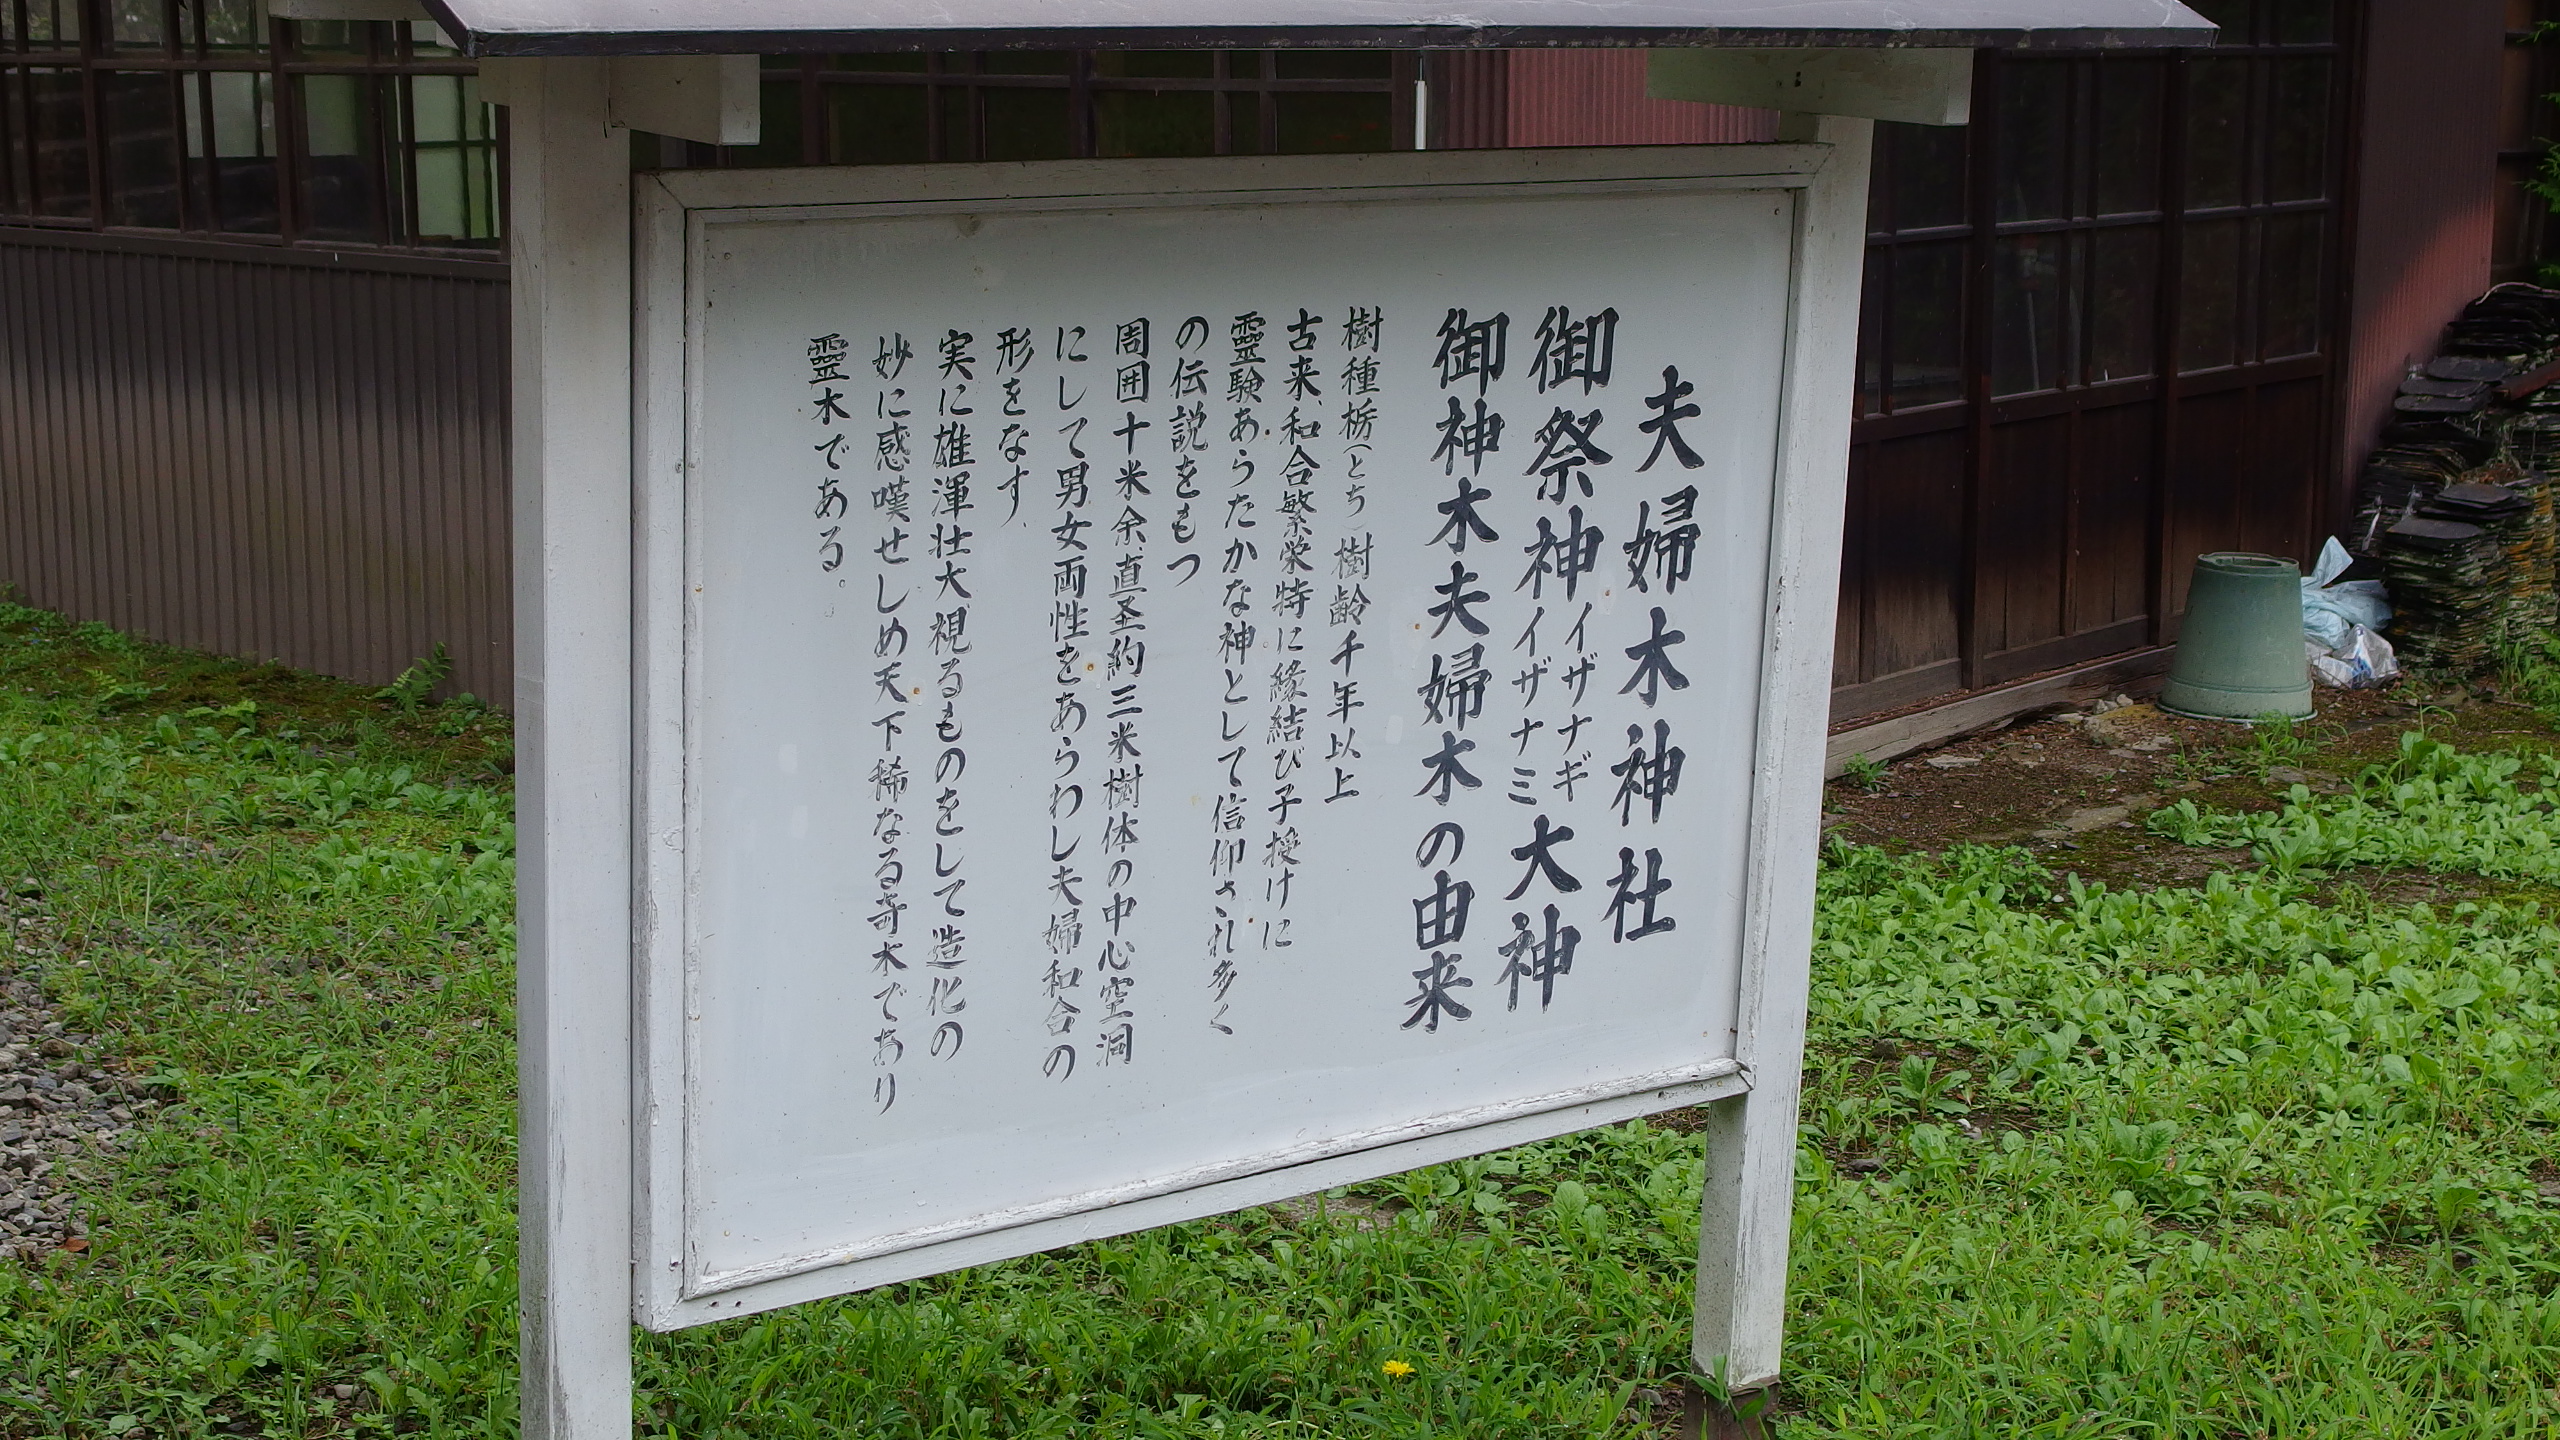 夫婦木神社
御祭神イザナギイザナミ大神
御神木夫婦木の由来
樹種栃(とち)樹齢千年以上
古来、和合繁栄特に縁結び子授けに
霊験あらたかな神として信仰され多く
の伝説をもつ
周囲十米余、直圣約三米樹体の中心空洞
にして男女両性をあらわし夫婦和合の
形をなす、
実に雄渾壮大視るものをして造化の
妙に感嘆せしめ天下稀なる奇木であり
靈木である。